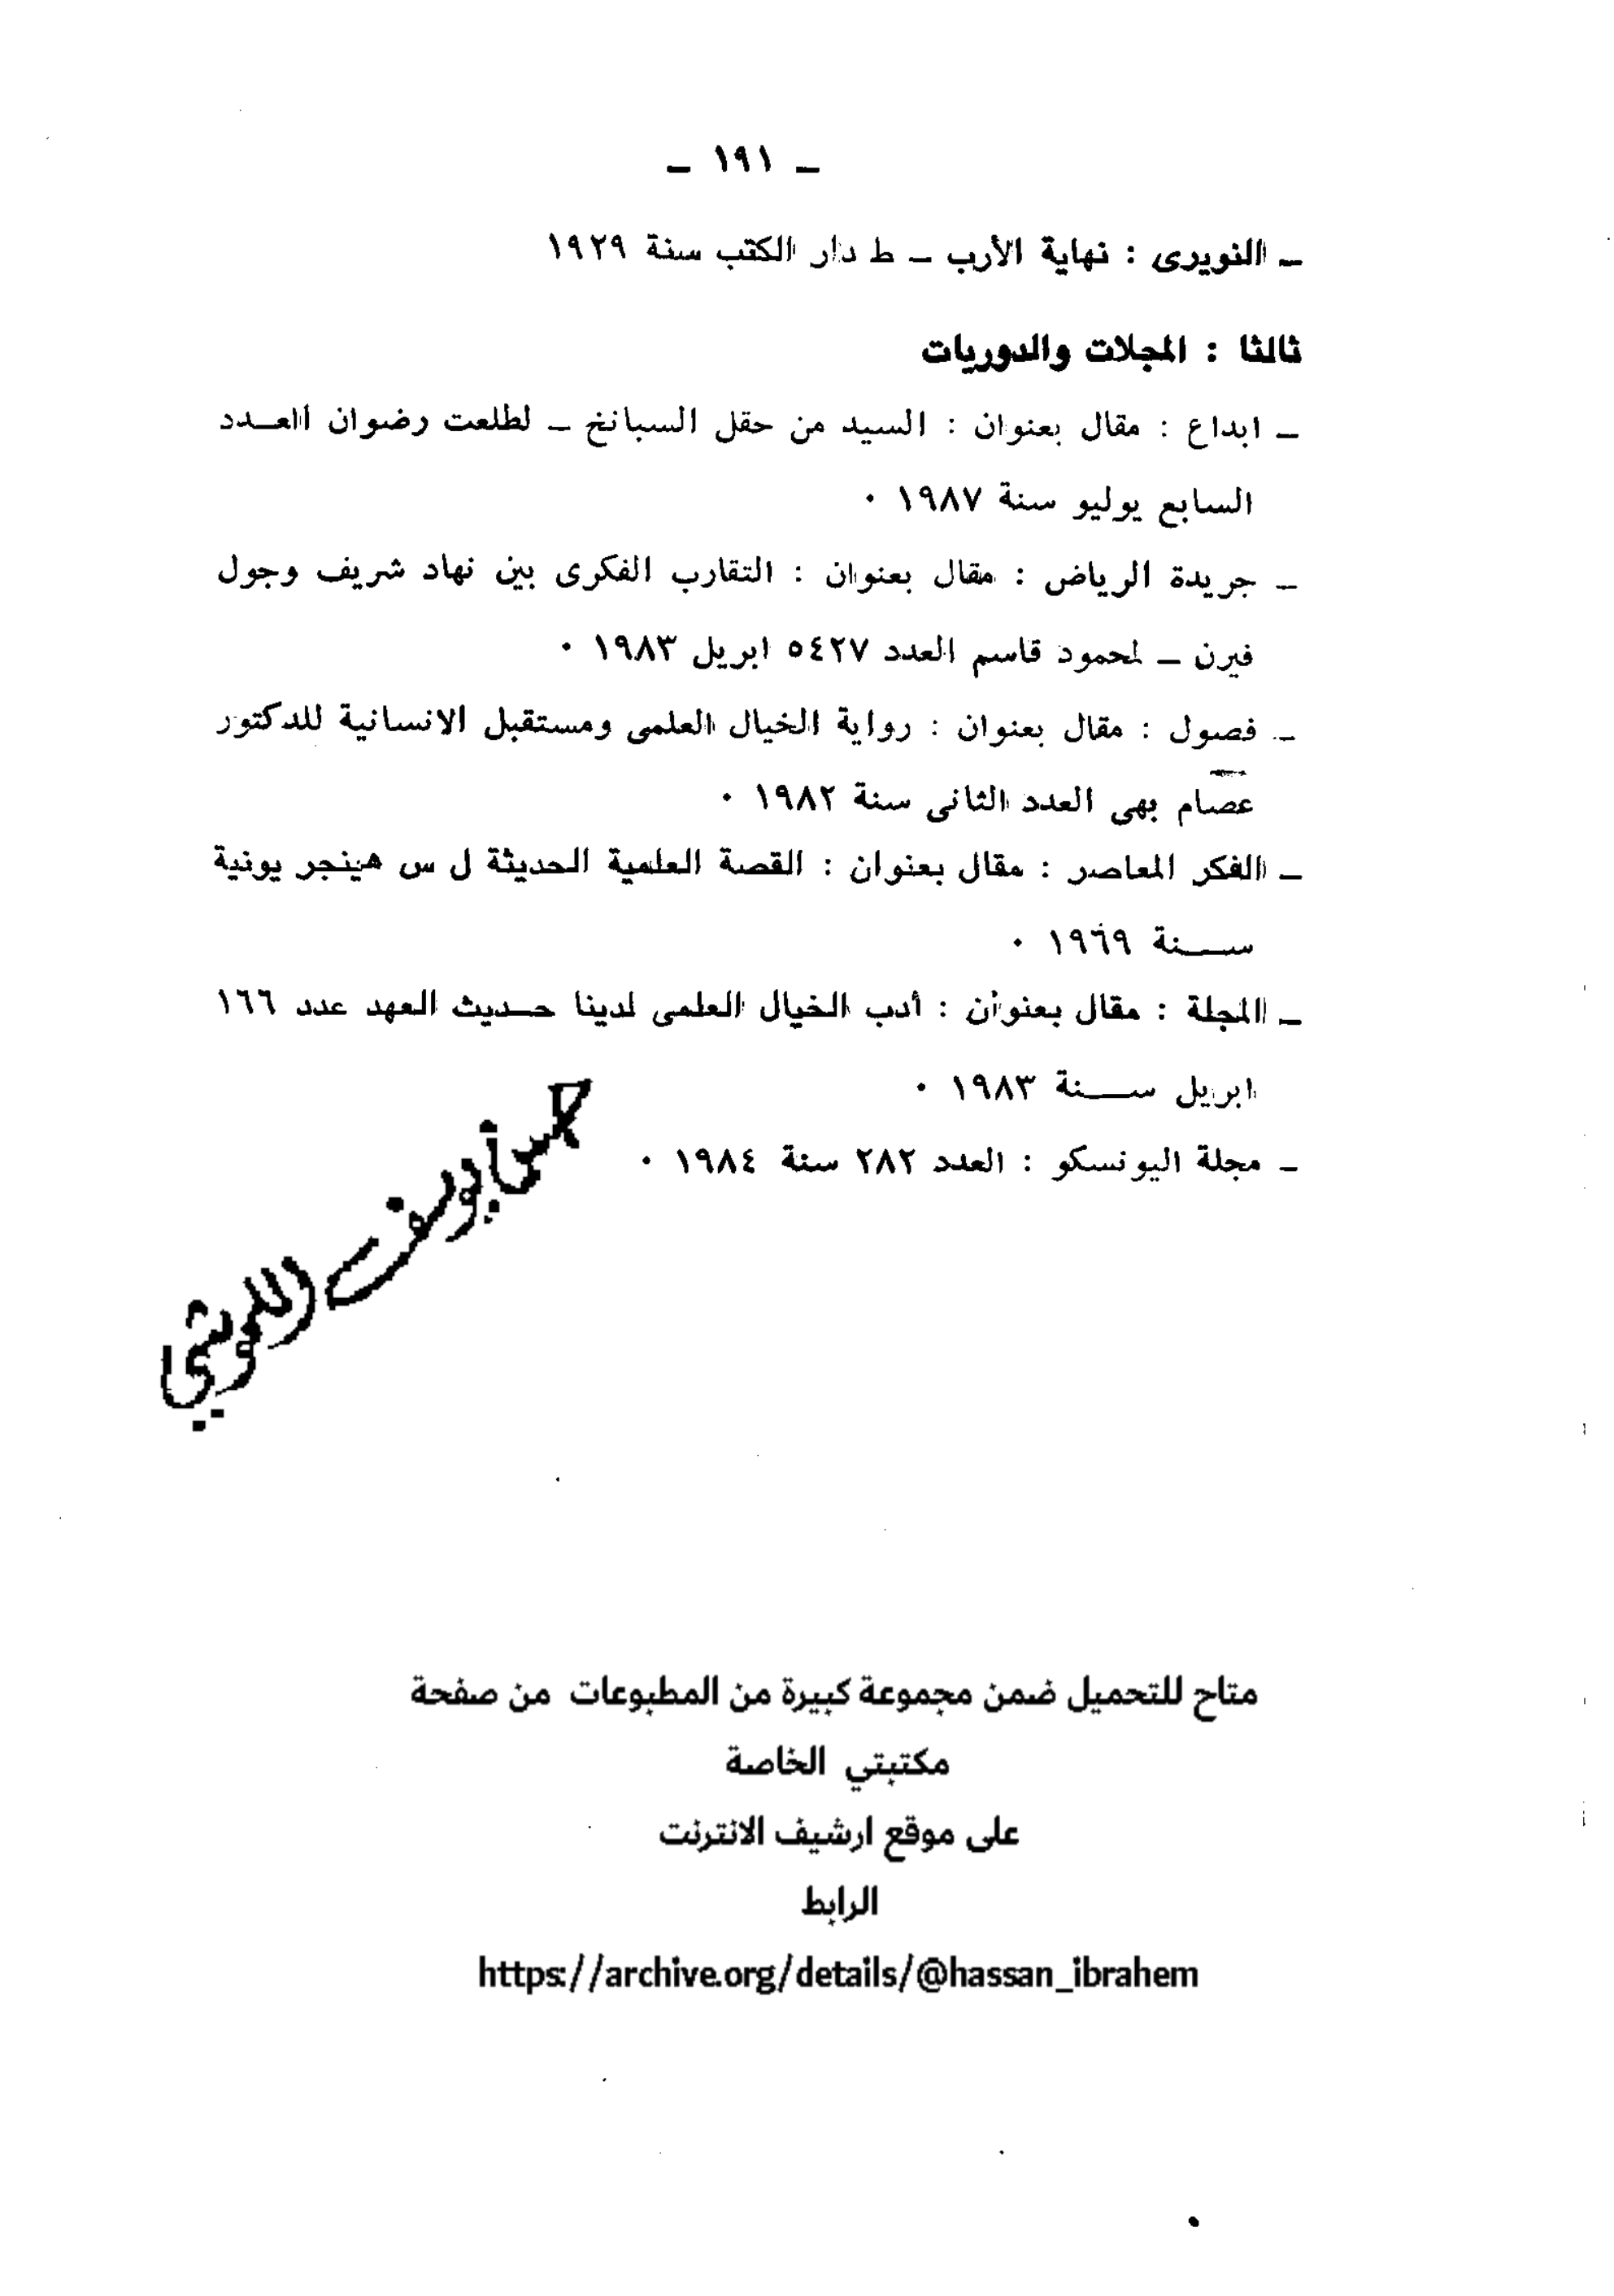 ـ ١٩١ ـ
ـ النويرى : نهاية الأرب ـ ط دار الكتب سنة ١٩٢٩
ثالثا : المجلات والدوريات
ـ ابداع : مقال بعنوان : السيد من حقل السبانخ ـ لطلعت رضوان العـدد
السابع يوليو سنة ١٩٨٧ ٠
ـ جريدة الرياض : مقال بعنوان : التقارب الفكرى بين نهاد شريف وجول
فيرن ـ لمحمود قاسم العدد ٥٤٢٧ ابريل ١٩٨٣ ٠
ـ فصول : مقال بعنوان : رواية الخيال العلمى ومستقبل الانسانية للدكتور
عصام بهى العدد الثانى سنة ١٩٨٢ ٠
ـ الفكر المعاصر : مقال بعنوان : القصة العلمية الحديثة ل س هينجر يونية
ســنة ١٩٦٩ ٠
ـ المجلة : مقال بعنوان : أدب الخيال العلمى لدينا حـديث العهد عدد ١٦٦
ابريل ســنة ١٩٨٣ ٠
ـ مجلة اليونسكو : العدد ٢٨٢ سنة ١٩٨٤ ٠
متاح للتحميل ضمن مجموعة كبيرة من المطبوعات من صفحة
مكتبتي الخاصة
على موقع ارشيف الانترنت
الرابط
https://archive.org/details/@hassan_ibrahem